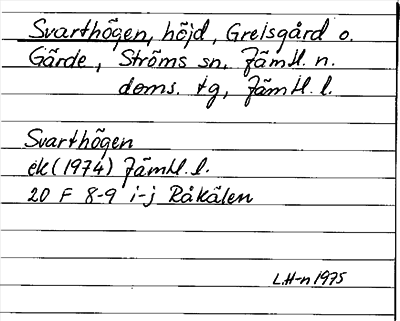 Svarthögen, höjd, Grelsgård o.
Gärde, Ströms sn, Jämtl. n.
doms. tg, Jämtl. l.
Svarthögen
ek (1974) Jämtl. l.
20 F 8-9 i-j Råkälen
L.H-n 1975